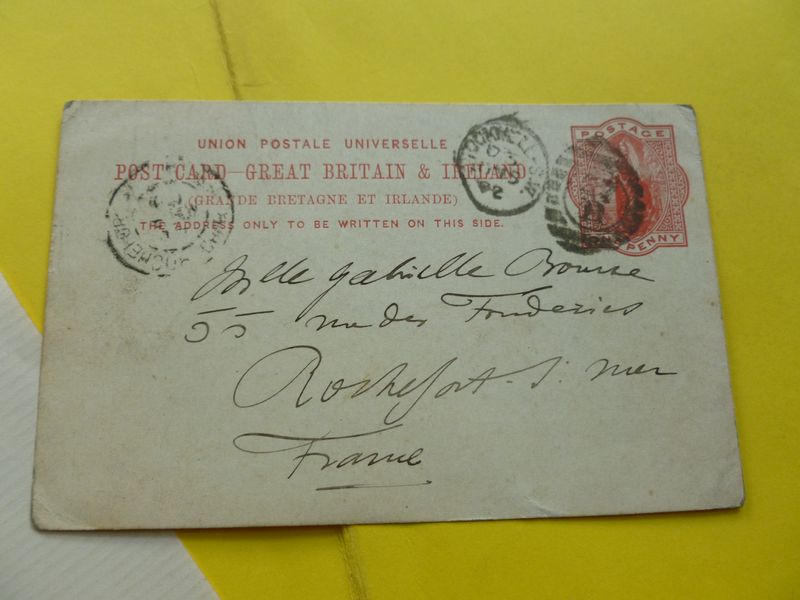 UNION POSTALE UNIVERSELLE
POST CARD—GREAT BRITAIN & IRELAND
(GRANDE BRETAGNE ET IRLANDE)
THE ADDRESS ONLY TO BE WRITTEN ON THIS SIDE.
POSTAGE
ONE PENNY
STOCKWELL S.W
92
Melle Gabrielle Bourse
55 rue des Fonderies
Rochefort. s. mer
France